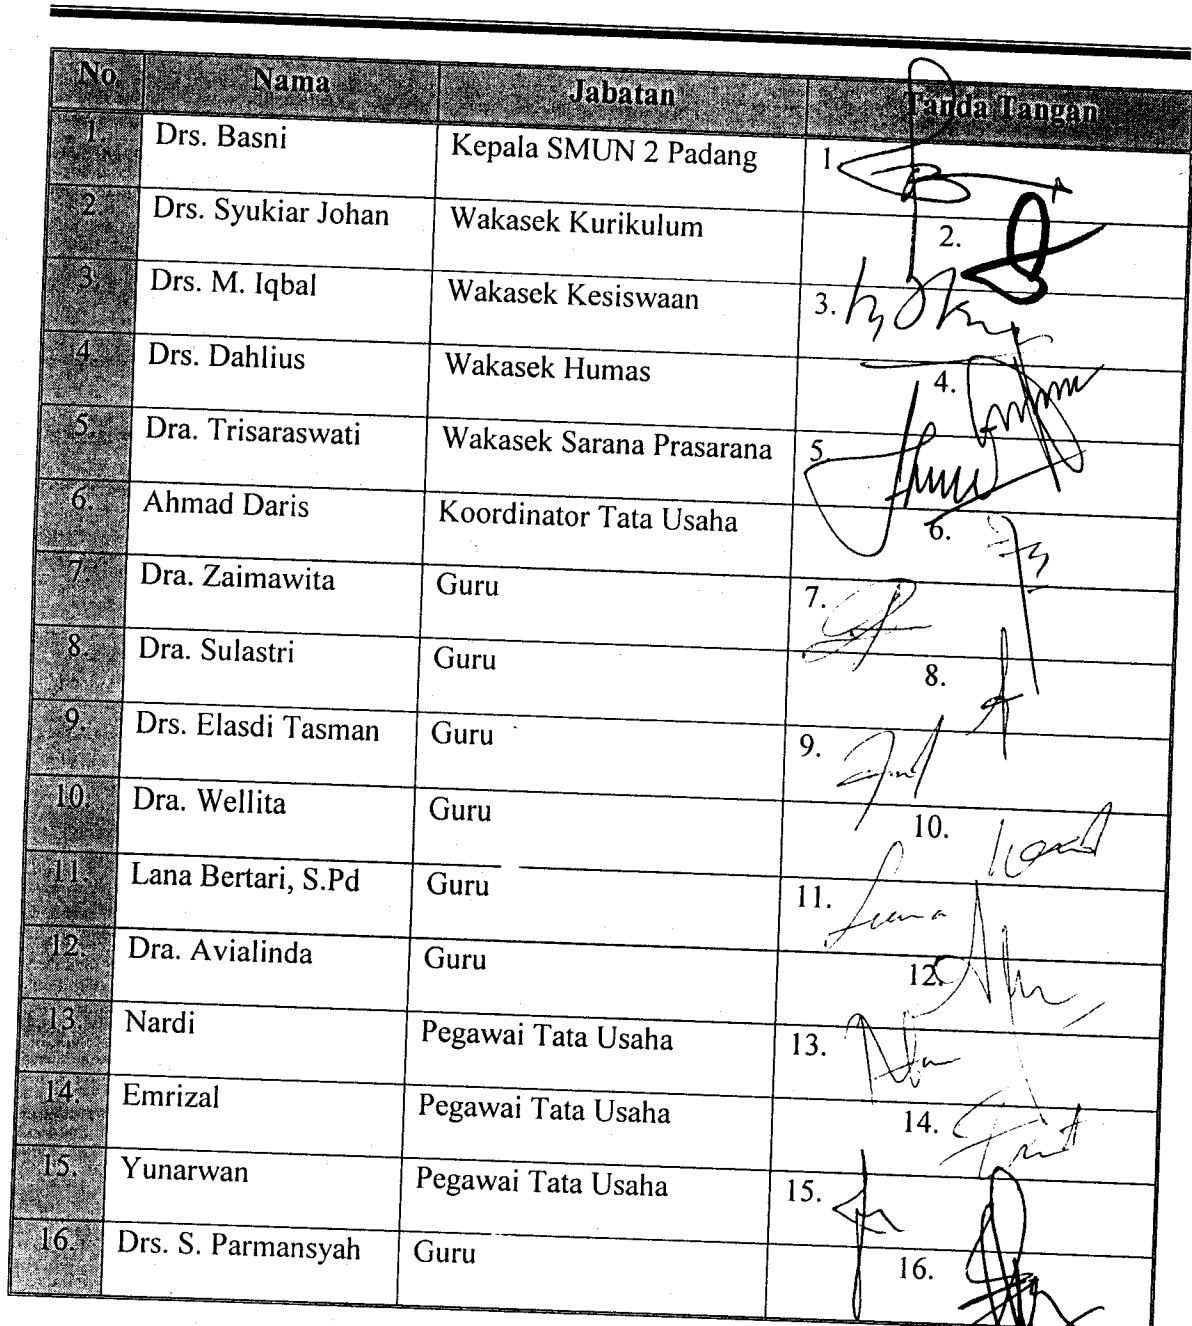 No Nama Jabatan Tanda Tangan
1. Drs. Basni Kepala SMUN 2 Padang 1
2. Drs. Syukiar Johan Wakasek Kurikulum 2.
3. Drs. M. Iqbal Wakasek Kesiswaan 3.
4. Drs. Dahlius Wakasek Humas 4.
5. Dra. Trisaraswati Wakasek Sarana Prasarana 5.
6. Ahmad Daris Koordinator Tata Usaha 6.
7. Dra. Zaimawita Guru 7.
8. Dra. Sulastri Guru 8.
9. Drs. Elasdi Tasman Guru 9.
10. Dra. Wellita Guru 10.
11. Lana Bertari, S.Pd Guru 11.
12. Dra. Avialinda Guru 12.
13. Nardi Pegawai Tata Usaha 13.
14. Emrizal Pegawai Tata Usaha 14.
15. Yunarwan Pegawai Tata Usaha 15.
16. Drs. S. Parmansyah Guru 16.